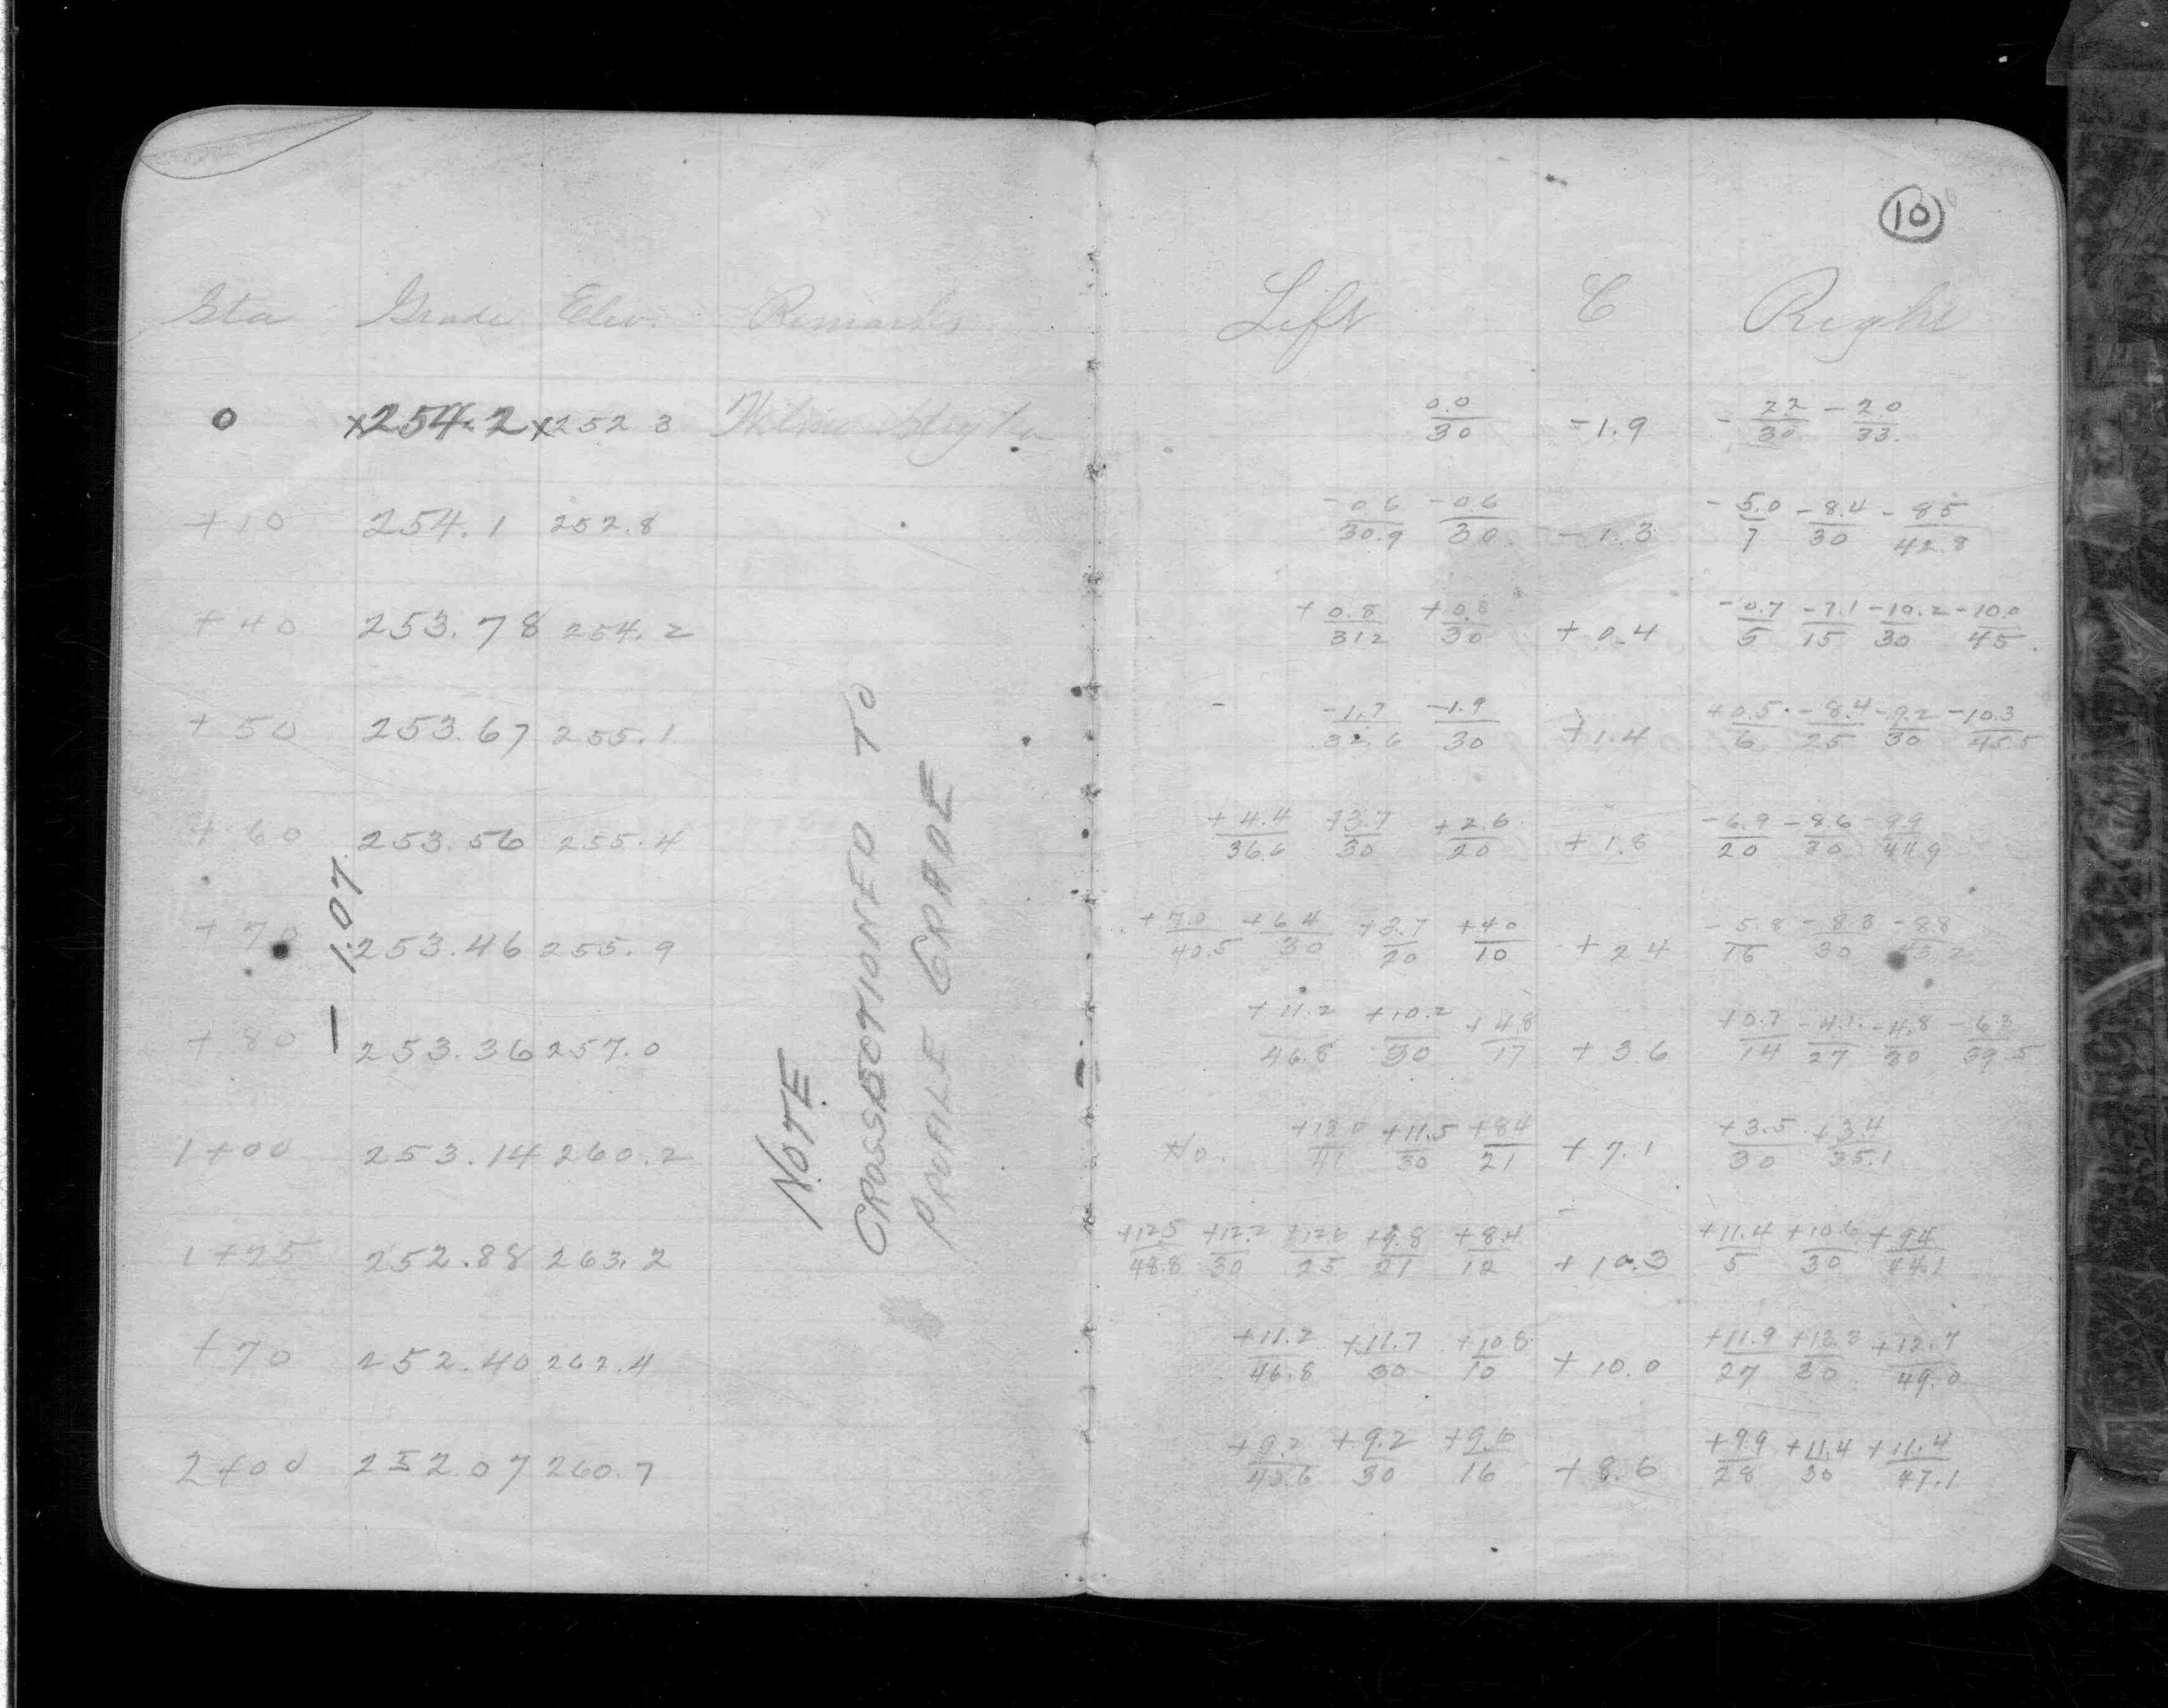 10
Sta Grade Elev. Remarks Left C Right
0 x254.2 x252.3 0.0/30 -1.9 - 2.2/30 - 2.0/33.
+10 254.1 252.8 -0.6/30.9 -0.6/30 -1.3 -5.0/7 -8.4/30 -8.5/42.8
+40 253.78 254.2 +0.8/31.2 +0.8/30 +0.4 -0.7/5 -7.1/15 -10.2/30 -10.0/45
+50 253.67 255.1 -1.7/32.6 -1.9/30 +1.4 +0.5/6 -8.4/25 -9.2/30 -10.3/45.5
+60 253.56 255.4 +4.4/36.6 +3.7/30 +2.6/20 +1.8 -6.9/20 -8.6/30 -9.9/44.9
+70 253.46 255.9 +7.0/40.5 +6.4/30 +3.7/20 +4.0/10 +2.4 -5.8/16 -8.8/30 -8.8/43.2
+80 253.36 257.0 +11.2/46.8 +10.2/30 +4.8/17 +3.6 +0.7/14 -4.1/27 -4.8/30 -6.3/39.5
1+00 253.14 260.2 +13.0/41 +11.5/30 +8.4/21 +7.1 +3.5/30 +3.4/35.1
1+25 252.88 263.2 +12.5/48.8 +12.2/30 +12.6/25 +9.8/21 +8.4/12 +10.3 +11.4/5 +10.6/30 +9.4/44.1
+70 252.40 262.4 +11.2/46.8 +11.7/30 +10.8/10 +10.0 +11.9/27 +13.3/30 +12.7/49.0
2+00 252.07 260.7 +9.2/43.6 +9.2/30 +9.6/16 +8.6 +9.9/28 +11.4/30 +11.4/47.1
- 1.07
NOTE
CROSSSECTIONED TO
PROFILE GRADE